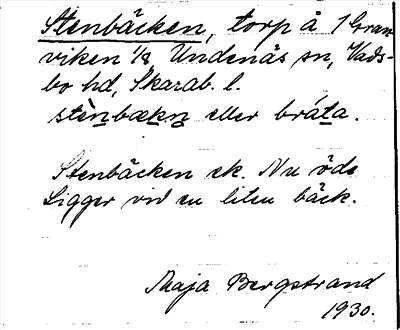 Stenbäcken, torp å 1 Gran-
viken 1/8, Undenäs sn, Vads-
bo hd, Skarab. l.
stènbækn eller bráta.
Stenbäcken sk. Nu öde
Ligger vid en liten bäck.
Maja Bergstrand
1930.